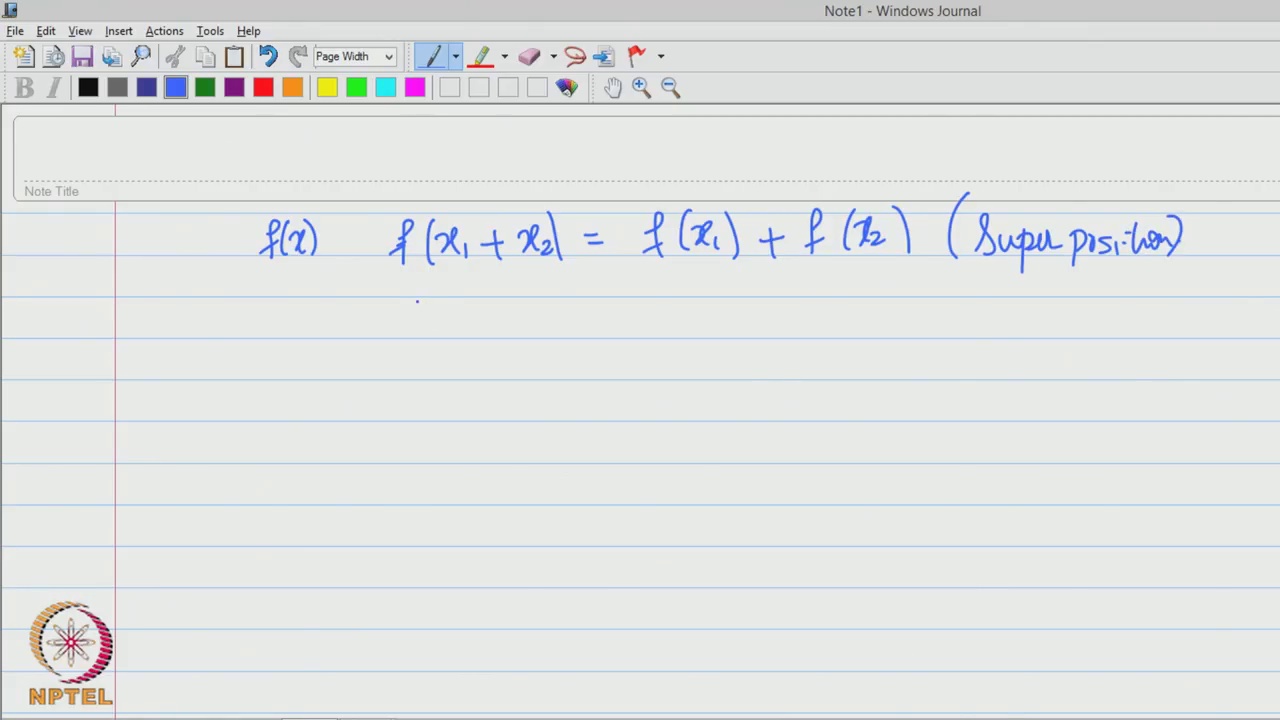 Note1 - Windows Journal
File Edit View Insert Actions Tools Help
Page Width
B I
Note Title
f(x) f(x₁ + x₂) = f(x₁) + f(x₂) (Superposition)
NPTEL